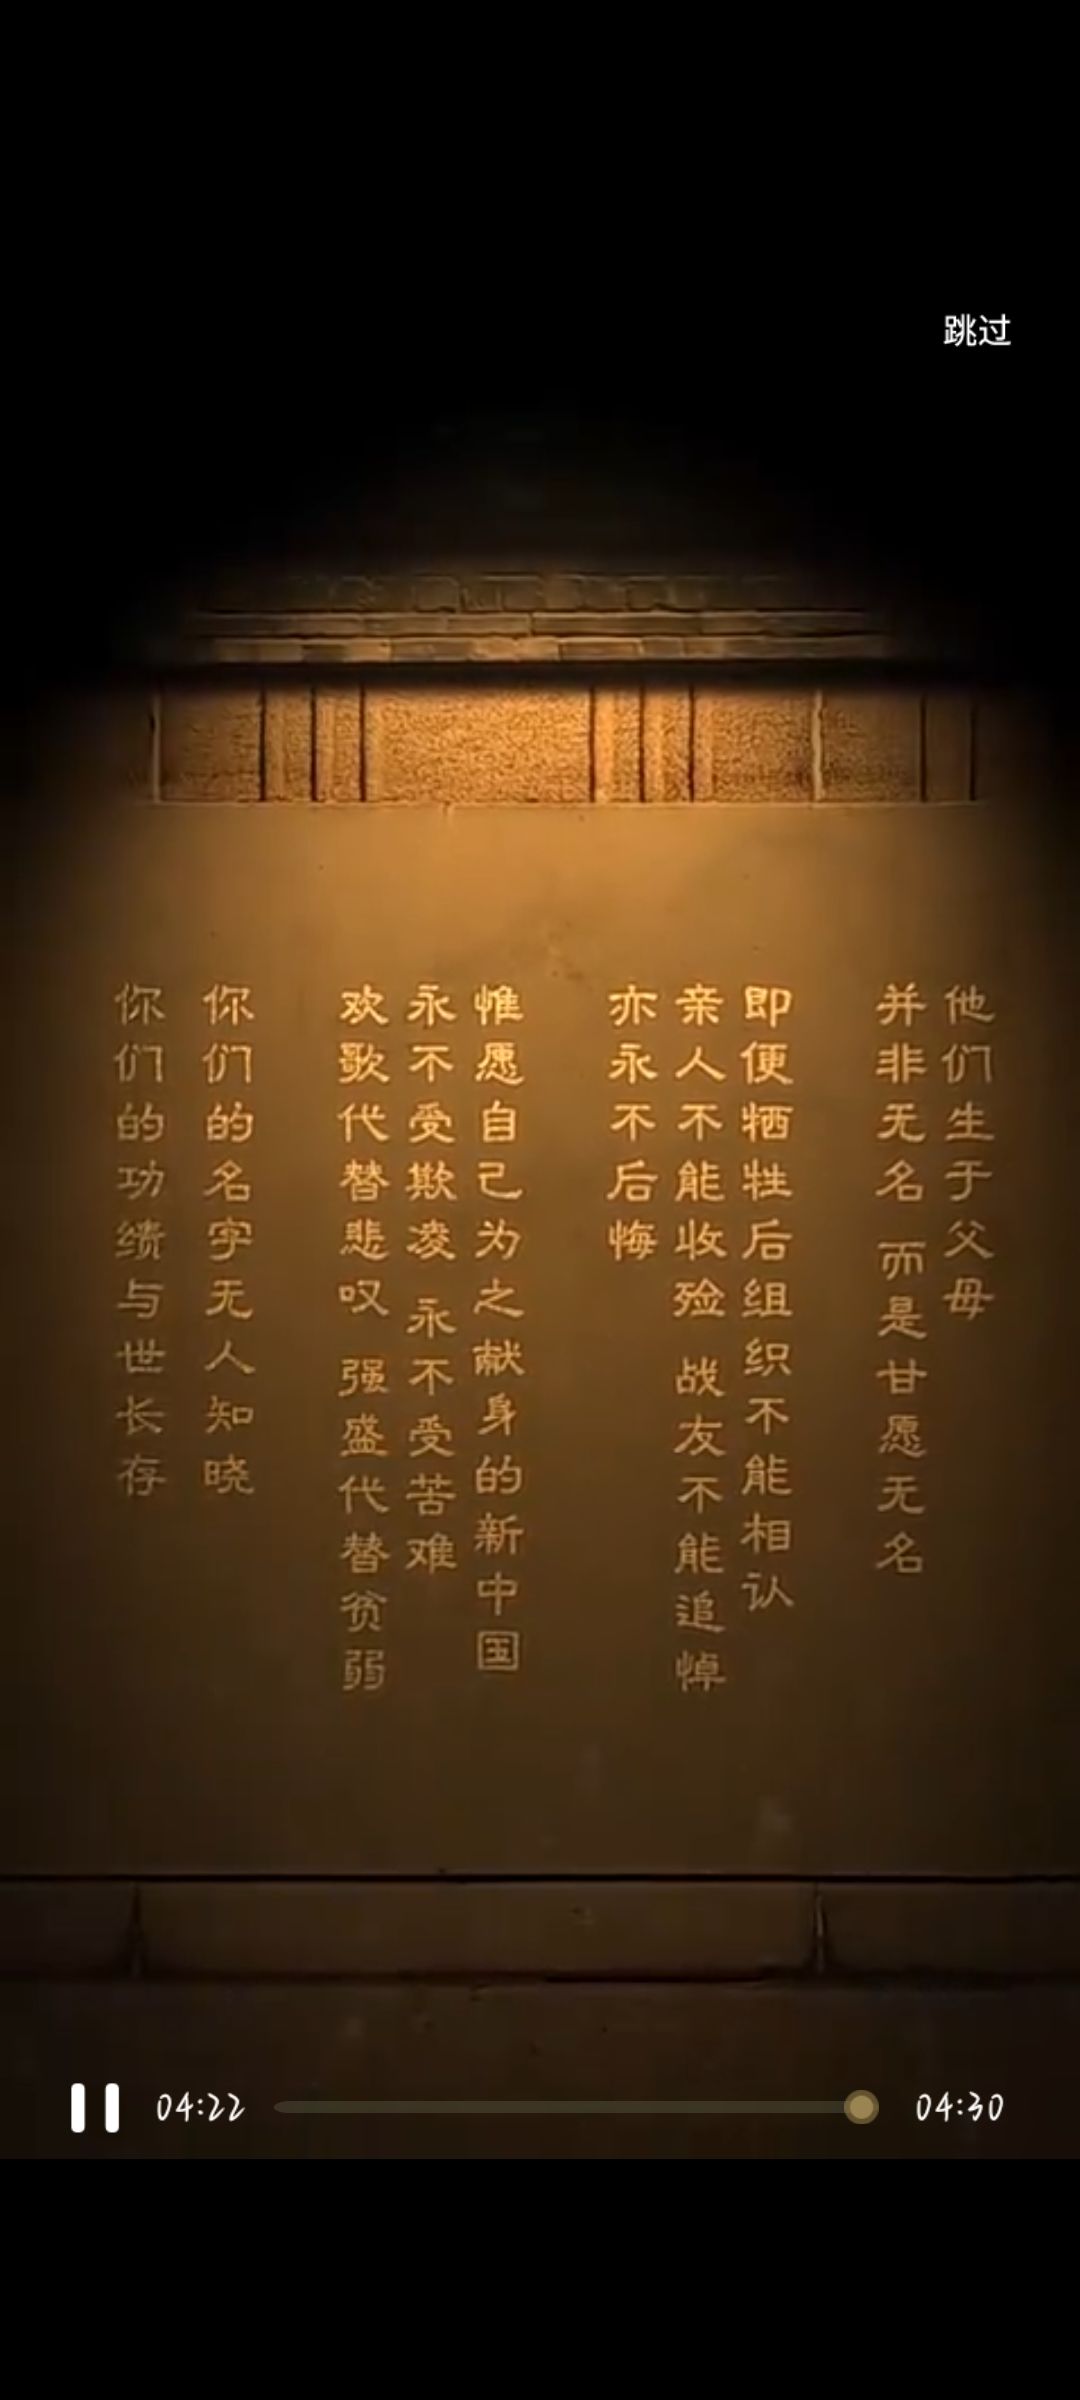 跳过
他们生于父母
并非无名 而是甘愿无名
即便牺牲后组织不能相认
亲人不能收殓 战友不能追悼
亦永不后悔
惟愿自己为之献身的新中国
永不受欺凌 永不受苦难
欢歌代替悲叹 强盛代替贫弱
你们的名字无人知晓
你们的功绩与世长存
04:22
04:30